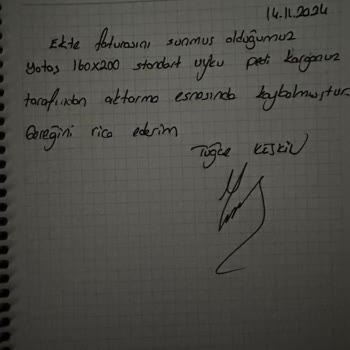 14.11.2024
Ekte faturasını sunmuş olduğumuz
Yataş 160x200 standart uyku pedi kargonuz
tarafından aktarma esnasında kaybolmuştur.
Gereğini rica ederim
Tuğçe KESKİN